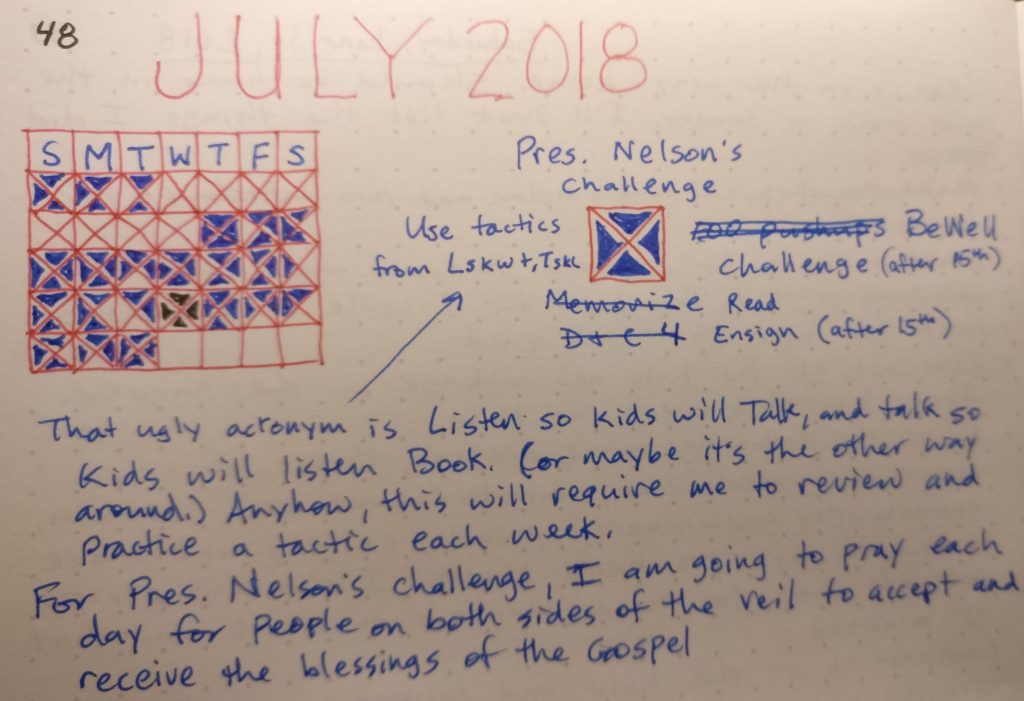 48
JULY 2018
S M T W T F S
Pres. Nelson's
challenge
Use tactics
from Lskwt, Tskl
100 pushups BeWell
challenge (after 15th)
Memorize Read
D+C 4 Ensign (after 15th)
That ugly acronym is Listen so kids will Talk, and talk so
Kids will listen Book. (or maybe it's the other way
around.) Anyhow, this will require me to review and
practice a tactic each week.
For Pres. Nelson's challenge, I am going to pray each
day for people on both sides of the veil to accept and
receive the blessings of the Gospel